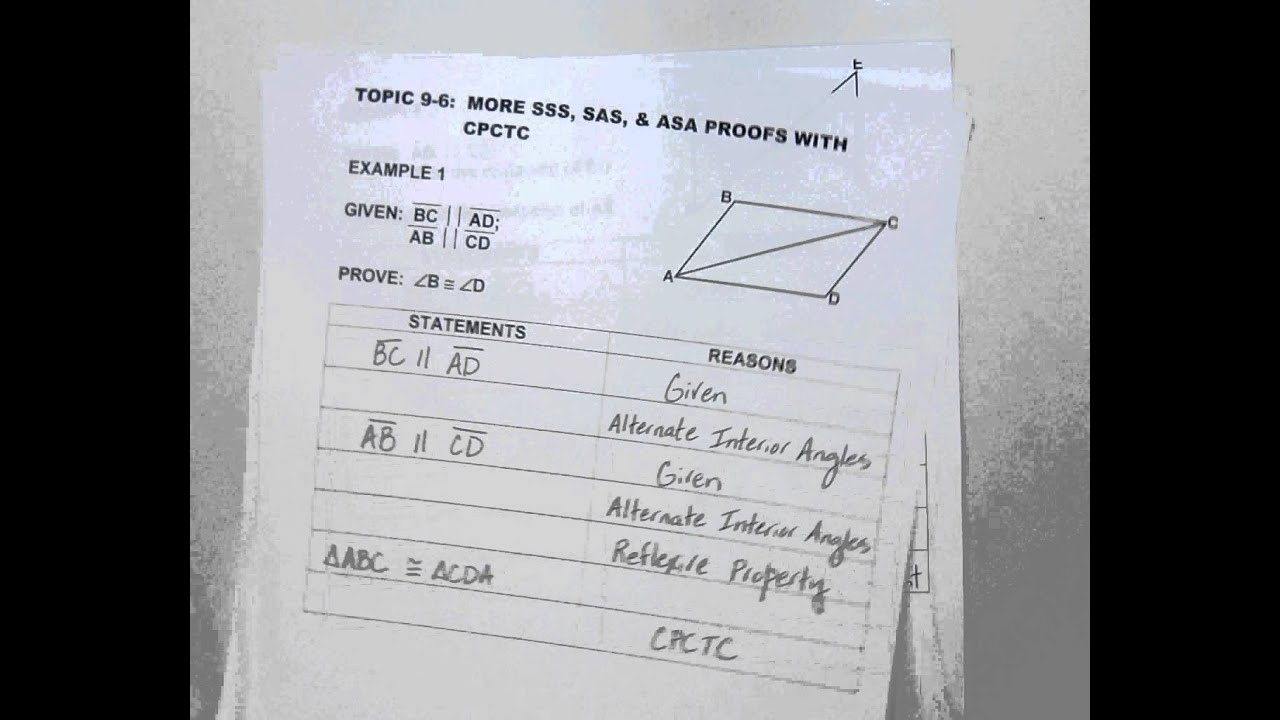 E
TOPIC 9-6: MORE SSS, SAS, & ASA PROOFS WITH
CPCTC
EXAMPLE 1
GIVEN: BC || AD;
AB || CD
PROVE: ∠B ≅ ∠D
B
C
A
D
STATEMENTS
REASONS
BC || AD
Given
Alternate Interior Angles
AB || CD
Given
Alternate Interior Angles
Reflexive Property
ΔABC ≅ ΔCDA
CPCTC